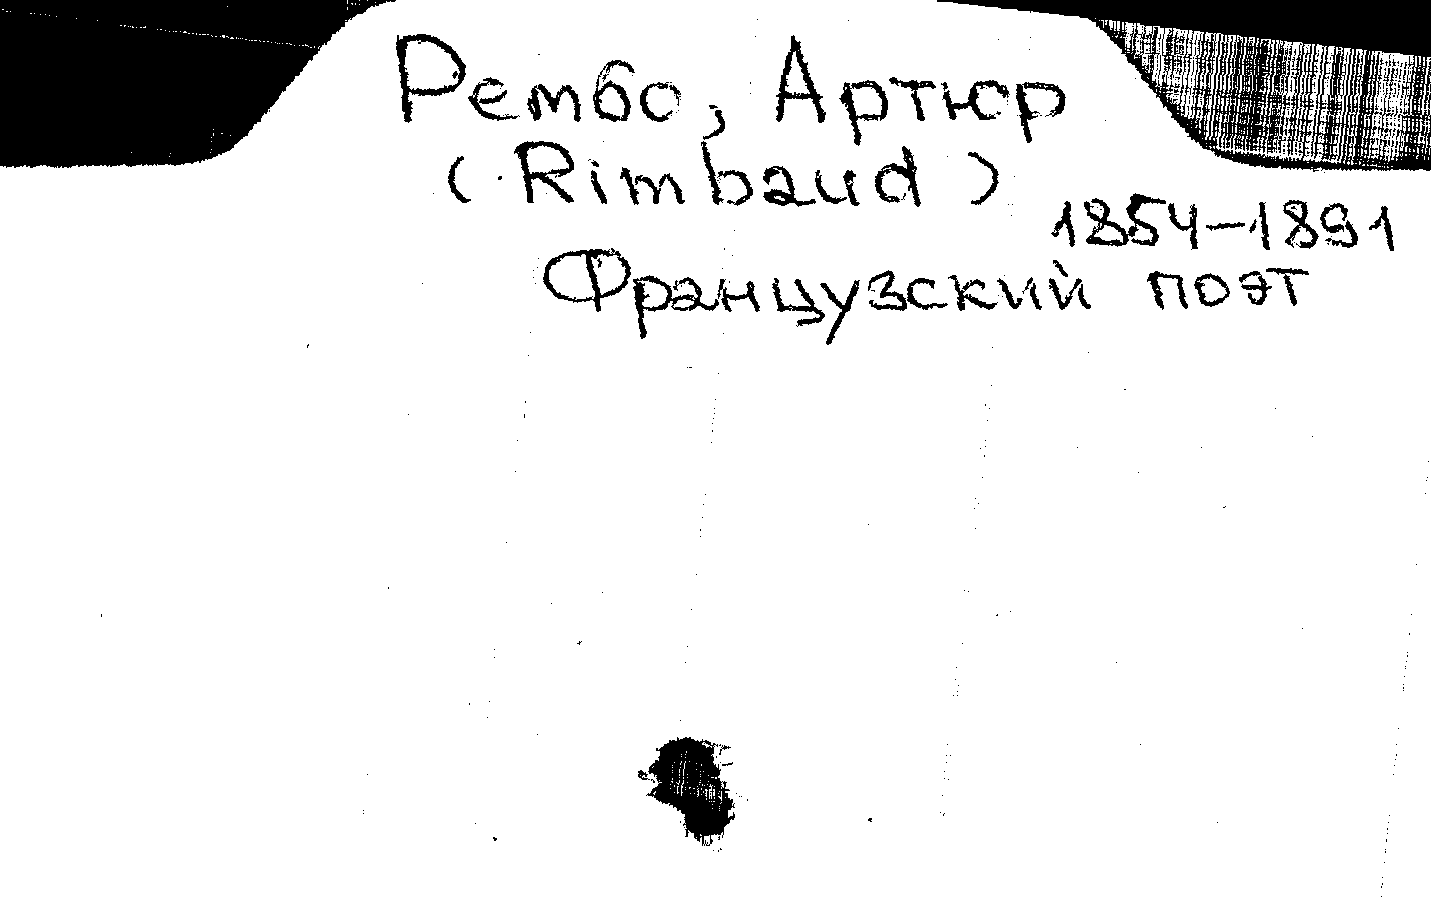 Рембо, Артюр
(Rimbaud)
1854-1891
Французский поэт